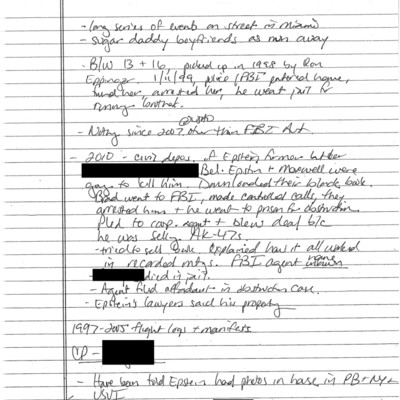 - long series of events on street in Miami
- sugar daddy boyfriends as run away
- B/W 13 + 16, picked up in 1998 by Ron
Eppinger. 1/11/99, police/FBI entered home,
fund her, arrested her, he went jail for
running brothel.
- Nothing since 2007 other than FBI Aut
- 2010 - civil depos. of Epstein, former butler
Bel. Epstein + Maxwell were
going to kill him. Downloaded their black book.
Brad went to FBI, made controlled calls, they
arrested him + he went to prison for obstruction.
Pled to coop. agent + blew deal b/c
he was selling AK-47s.
- tried to sell book. Explained how it all worked
in recorded mtgs. FBI agent name unknown
- died in jail.
- Agent filed affidavit in obstruction case.
- Epstein's lawyers said his property
1997-2005 flight logs + manifests
CP -
- Have been told Epstein had photos in house in PB + NY +
USVI